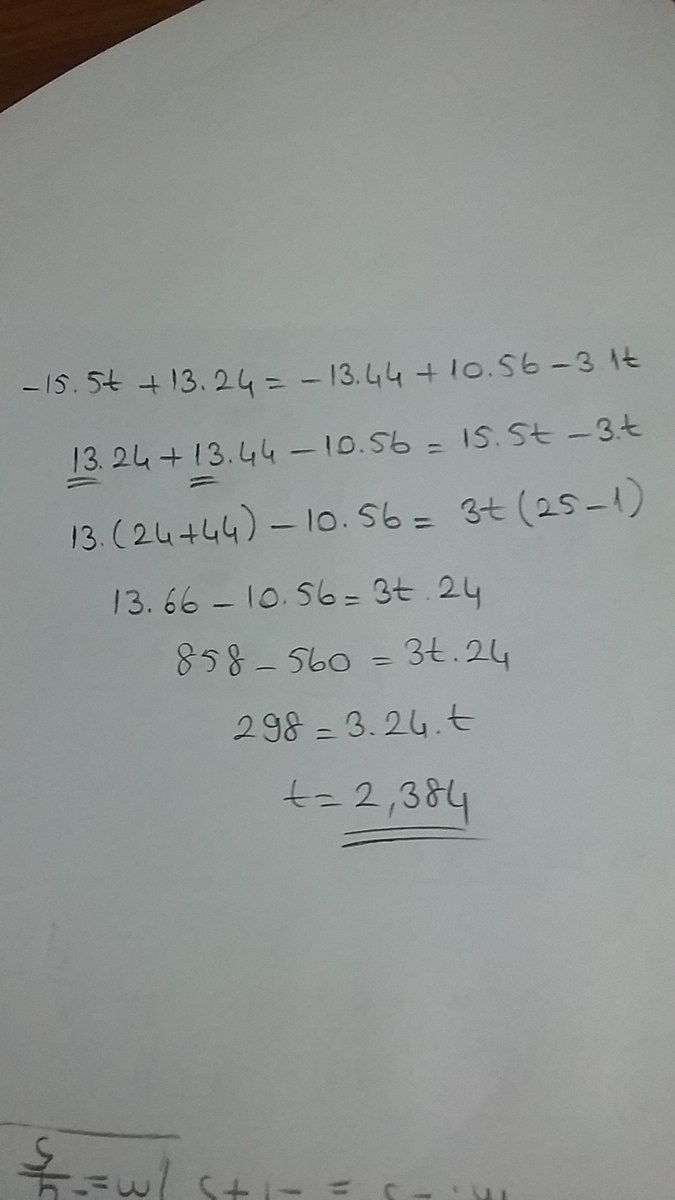 -15.5t + 13.24 = -13.44 + 10.56 - 3.1t
13.24 + 13.44 - 10.56 = 15.5t - 3.t
13.(24+44) - 10.56 = 3t(25-1)
13.66 - 10.56 = 3t.24
858 - 560 = 3t.24
298 = 3.24.t
t = 2,384